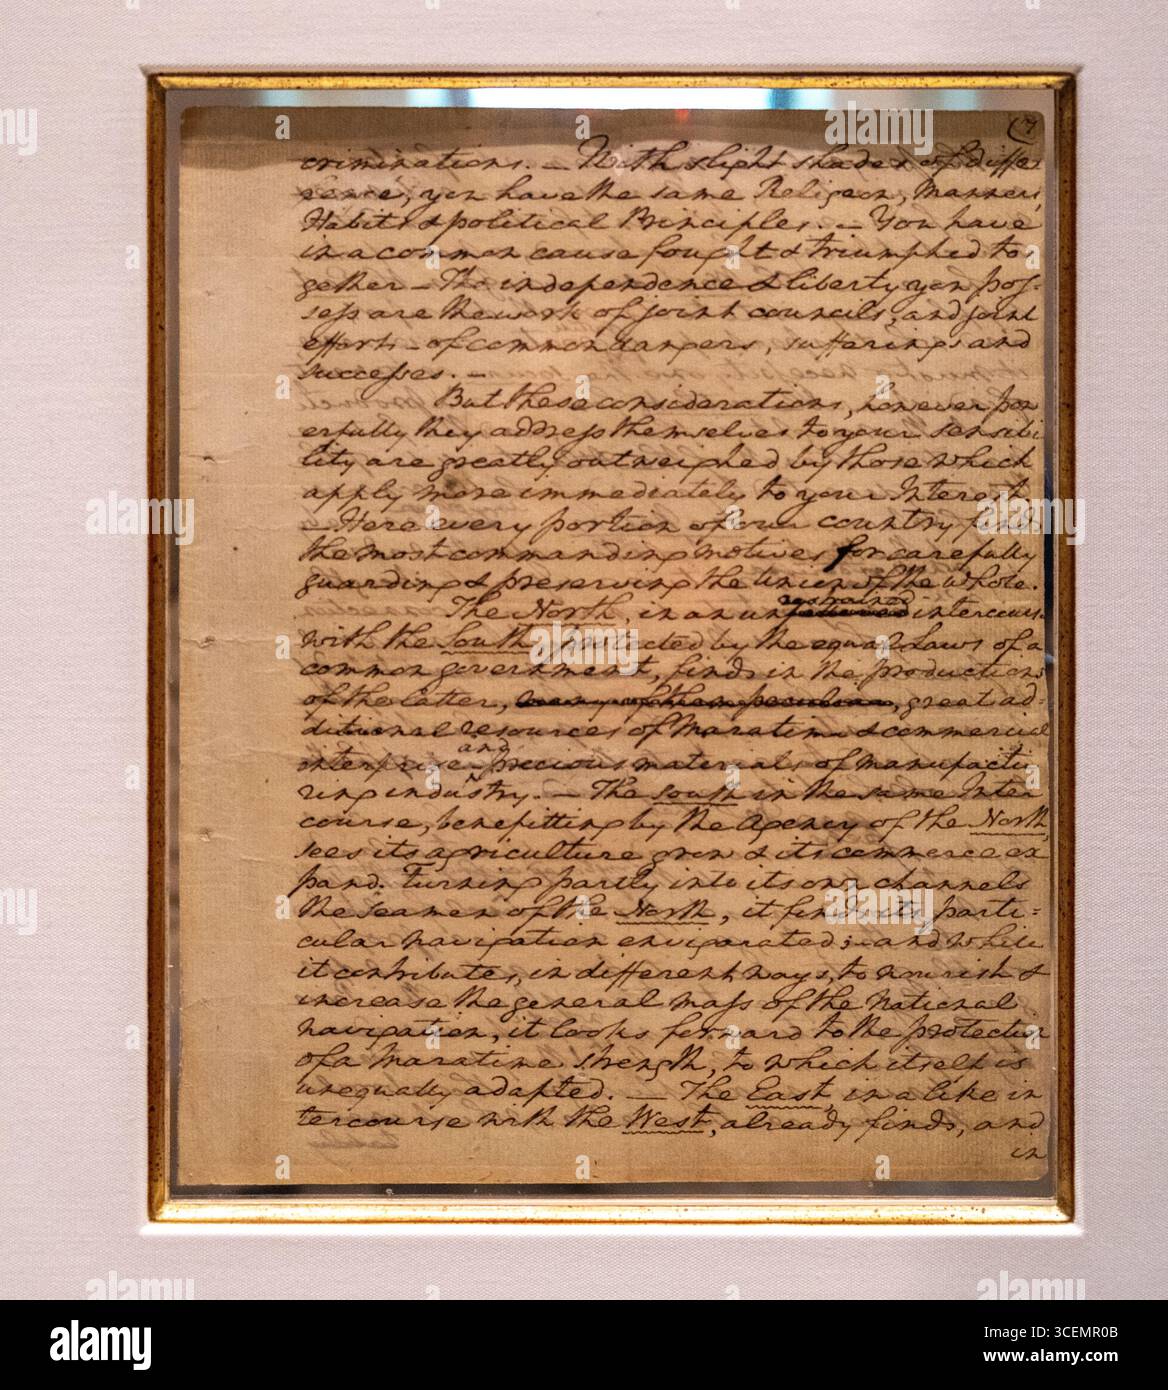 (7
criminations. — With slight shades of diffe-
rence, you have the same Religeon, Manners,
Habits & political Principles. — You have
in a common cause fought & triumphed to-
gether — The independence & liberty you pos-
sess are the work of joint councils, and joint
efforts — of common dangers, sufferings and
successes. —
But these considerations, however pow
erfully they address themselves to your sensibi
lity are greatly outweighed by those which
apply more immediately to your Interest
— Here every portion of our country finds
the most commanding motives for carefully
guarding & preserving the Union of the whole.
restrained
The North, in an unfettered intercourse
with the South, protected by the equal Laws of a
common government, finds in the productions
of the latter, many of them peculiar, great ad-
ditional resources of Maratime & commercial
and
enterprise precious materials of manufactu
ring industry. — The South in the same Inter
course, benefitting by the Agency of the North,
sees its agriculture grow & its commerce ex
pand. Turning partly into its own channels
the seamen of the North, it finds its parti-
cular navigation envigorated; and while
it contributes, in different ways, to nourish &
increase the general mass of the National
navigation, it looks forward to the protection
of a Maratime strength, to which itself is
unequally adapted. — The East, in a like in
tercourse with the West, already finds, and
in
alamy
Image ID: 3CEMR0B
www.alamy.com